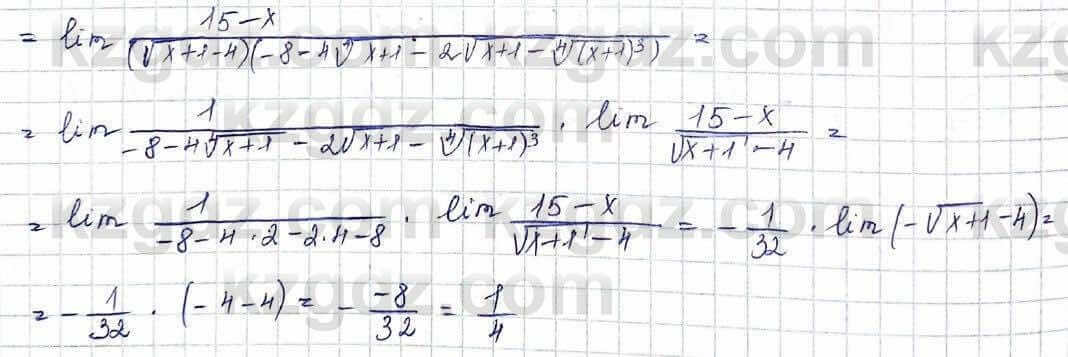 = lim 15-x / (√x+1-4)(-8-4∜x+1-2√x+1-∜(x+1)³) =
= lim 1 / -8-4∜x+1-2√x+1-∜(x+1)³ · lim 15-x / √x+1-4 =
= lim 1 / -8-4·2-2·4-8 · lim 15-x / √1+1-4 = -1/32 · lim(-√x+1-4) =
= -1/32 · (-4-4) = - -8/32 = 1/4
kzgdz.com